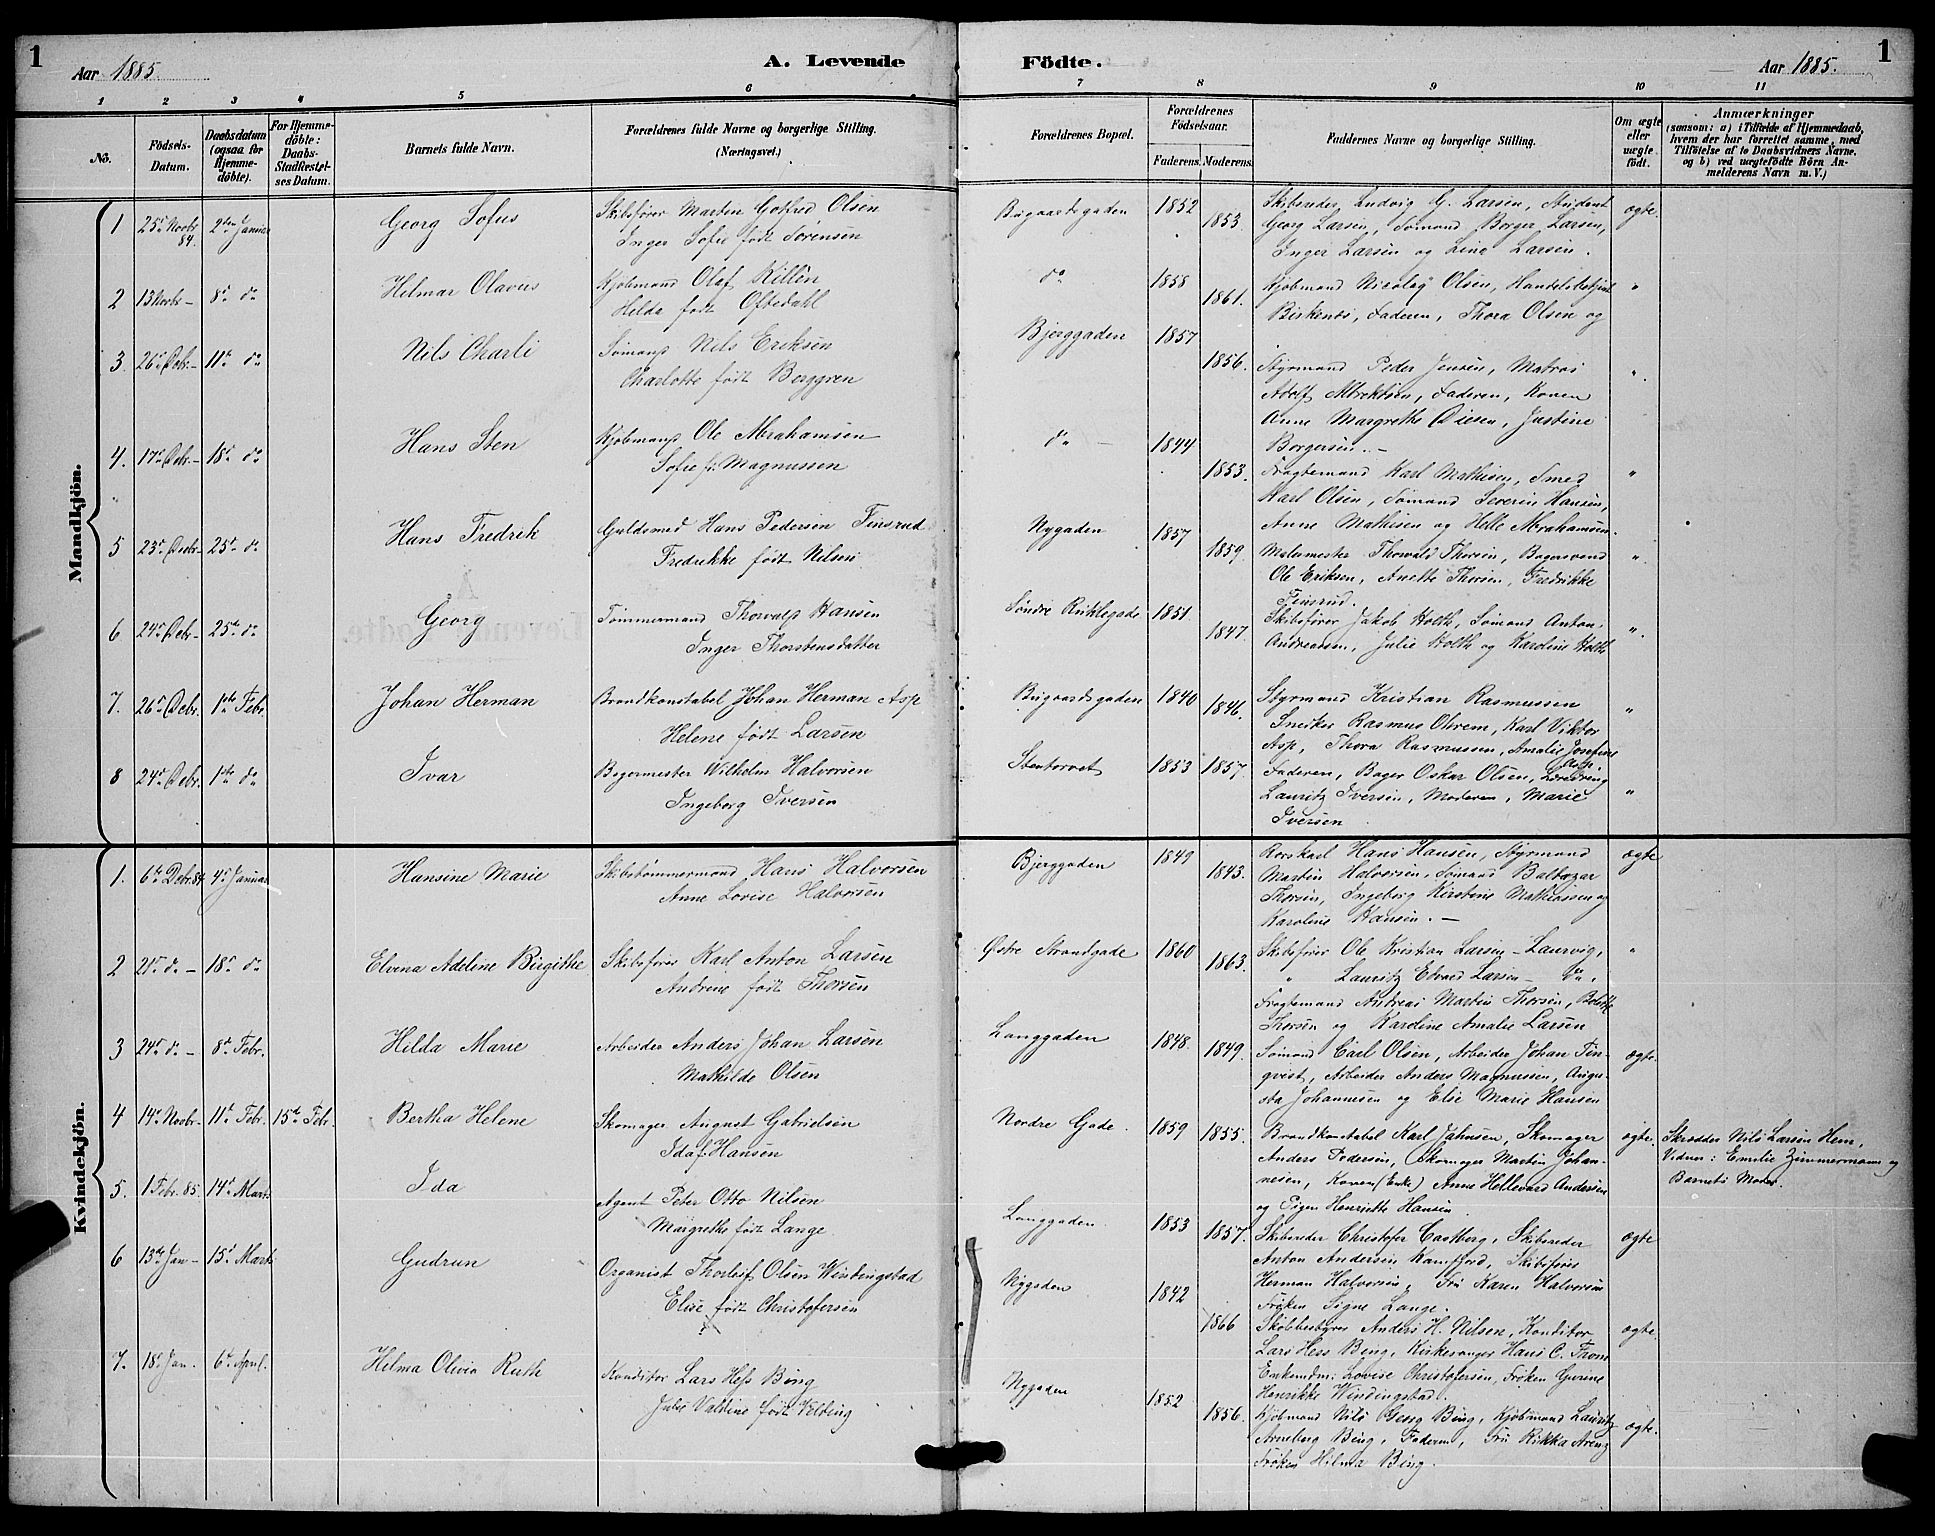 1
Aar 1885.
A. Levende
1 2 3 4 5 6
No.
Födsels-Datum.
Daabsdatum (ogsaa for Hjemme-döbte).
For Hjemme-döbte: Daabs-Stadfæstel-ses Datum.
Barnets fulde Navn.
Forældrenes fulde Navne og borgerlige Stilling.
(Næringsvei.)
Födte.
Aar 1885.
1
7 8 9 10 11
Forældrenes Bopæl.
Forældrenes Födselsaar.
Faderens. Moderens.
Faddernes Navne og borgerlige Stilling.
Om ægte eller uægte födt.
Anmærkninger
(saasom: a) i Tilfælde af Hjemmedaab, hvem der har forrettet samme, med Tilföielse af to Daabsvidners Navne, og b) ved uægtefödte Börn An-melderens Navn m. V.)
Mandkjön.
1 25d Novbr 84. 2den Januar Georg Sofus Skibsfører Marten Gotfred Olsen
Inger Sofie født Sørensen
Bugaardsgaden 1852 1853. Skibsreder Ludvig G. Larsen, Student
Georg Larsen, Sømand Borger Larsen,
Inger Larsen og Lina Larsen. ægte.
2 13 Novbr – 8d do Helmar Olavus Kjøbmand Olaf Killen
Hilda født Oftedahl
do 1858 1861. Kjøbmand Nicolay Olsen, Handelsbetjent
Birkenes, Faderen, Thora Olsen og "
3. 26d Debr.– 11te do Nils Charli Sømand Nils Eriksen
Charlotte født Berggren
Bjerggaden 1857 1856. Styrmand Peder Jensen, Matros
Adolf Albrektsen, Faderen, Konen
Anne Margrethe Olesen, Justine
Borgersen. – "
4. 17d Debr– 18d do Hans Sten Kjøbmand Ole Abrahamsen
Sofie f. Magnussen
do – 1844 1853. Fragtemand Karl Mathisen, Smed
Karl Olsen, Sømand Severin Hansen,
Anne Mathisen og Helle Abrahamsen. "
5 23d Decbr– 25d do Hans Fredrik Guldsmed Hans Pedersen Finsrud
Fredrikke født Nilsen
Nygaden 1857 1859. Malermester Thorvald Thorsen, Bagersvend
Ole Eriksen, Anette Thorsen, Fredrikke
Finsrud. "
6 24d Debr– 25de do Georg Tømmermand Thorvald Hansen
Inger Thorstensdatter
Søndre Kirkegade 1851. 1847. Skibsfører Jakob Holth, Sømand Anton
Andreasen, Julie Holth og Karoline Holth "
7. 26d Debr. 1ste Febr. Johan Herman Brandkonstabel Johan Herman Asp
Helene født Larsen
Bugaardsgaden 1840 1846. Styrmand Kristian Rasmussen
Snedker Rasmus Olsen, Karl Viktor
Asp, Thora Rasmussen, Amalie Josefine
Asp. "
8 24d Debr. 1ste do Ivar Bagermester Wilhelm Halvorsen
Ingeborg Iversen
Stentorvet 1853 1857. Faderen, Bager Oskar Olsen, Læredreng
Lauritz Iversen, Moderen, Marie
Iversen "
Kvindekjön.
1. 6te Debr. 84 4d Januar Hansine Marie Skibstømmermand Hans Halvorsen
Anne Lovise Halvorsen
Bjerggaden 1849 1843. Rorskarl Hans Hansen, Styrmand
Martin Halvorsen, Sømand Baltazar
Thorsen, Ingeborg Kirstine Mathiassen og
Karoline Hansen. – ægte
2 21d do – 18d do Elvina Adeline Birgithe Skibsfører Karl Anton Larsen
Andrine født Thorsen
Østre Strandgade 1860 1863. Skibsfører Ole Kristian Larsen – Laurvig,
" Lauritz Edvard Larsen – do,
Fragtemand Andreas Martin Thorsen, Bolette
Thorsen og Karoline Amalie Larsen "
3 24d do – 8d Febr. Hilda Marie Arbeider Anders Johan Larsen
Mathilde Olsen
Langgaden 1848. 1849. Sømand Carl Olsen, Arbeider Johan Fin-
qvist, Arbeider Anders Magnussen, Augu-
sta Johannesen og Elise Marie Hansen ægte.
4 14d Novbr– 11te Febr. 15de Febr. Bertha Helene Skomager August Gabrielsen
Ida f. Hansen
Nordre Gade. 1859 1855. Brandkonstabel Karl Jahnsen, Skomager
Anders Pedersen, Skomager Martin Johan-
nesen, Konen (Enke) Anne Hellevard Andersen
og Pigen Henriette Hansen ægte. Skrædder Nils Larsen Hem,
Vidner: Emilie Zimmermann og
Barnets Moder.
5. 1 Febr. 85. 14d Marts Ida Agent Peter Otto Nilsen
Margrethe født Lange
Langgaden. 1853 1857. Skibsreder Christofer Castberg, Skibsreder
Anton Andersen Kamfjord, Skibsfører
Herman Halvorsen, Fru Karen Halvorsen
Frøken Signe Lange. ægte
6 13de Jan – 15d Marts Gudrun Organist Thorleif Olsen Windingstad
Elise født Christofersen
Nygaden 1842 1866 Skolebestyrer Anders H. Nilsen, Konditor
Lars Hess Bing, Kirkesanger Hans C. Thom
Enkemdm: Lovise Christofersen, Frøken Gurine
Henrikke Windingstad. ægte.
7. 18d Jan. 6te April. Helma Olivia Ruth Konditor Lars Hess Bing
Julie Valdine født Velding
Nygaden 1852 1856. Kjøbmand Nils Georg Bing, Kjøbmand Lauritz
Arneberg Bing, Faderen, Fru Rikka Arenz
Frøken Hilma Bing. ægte.